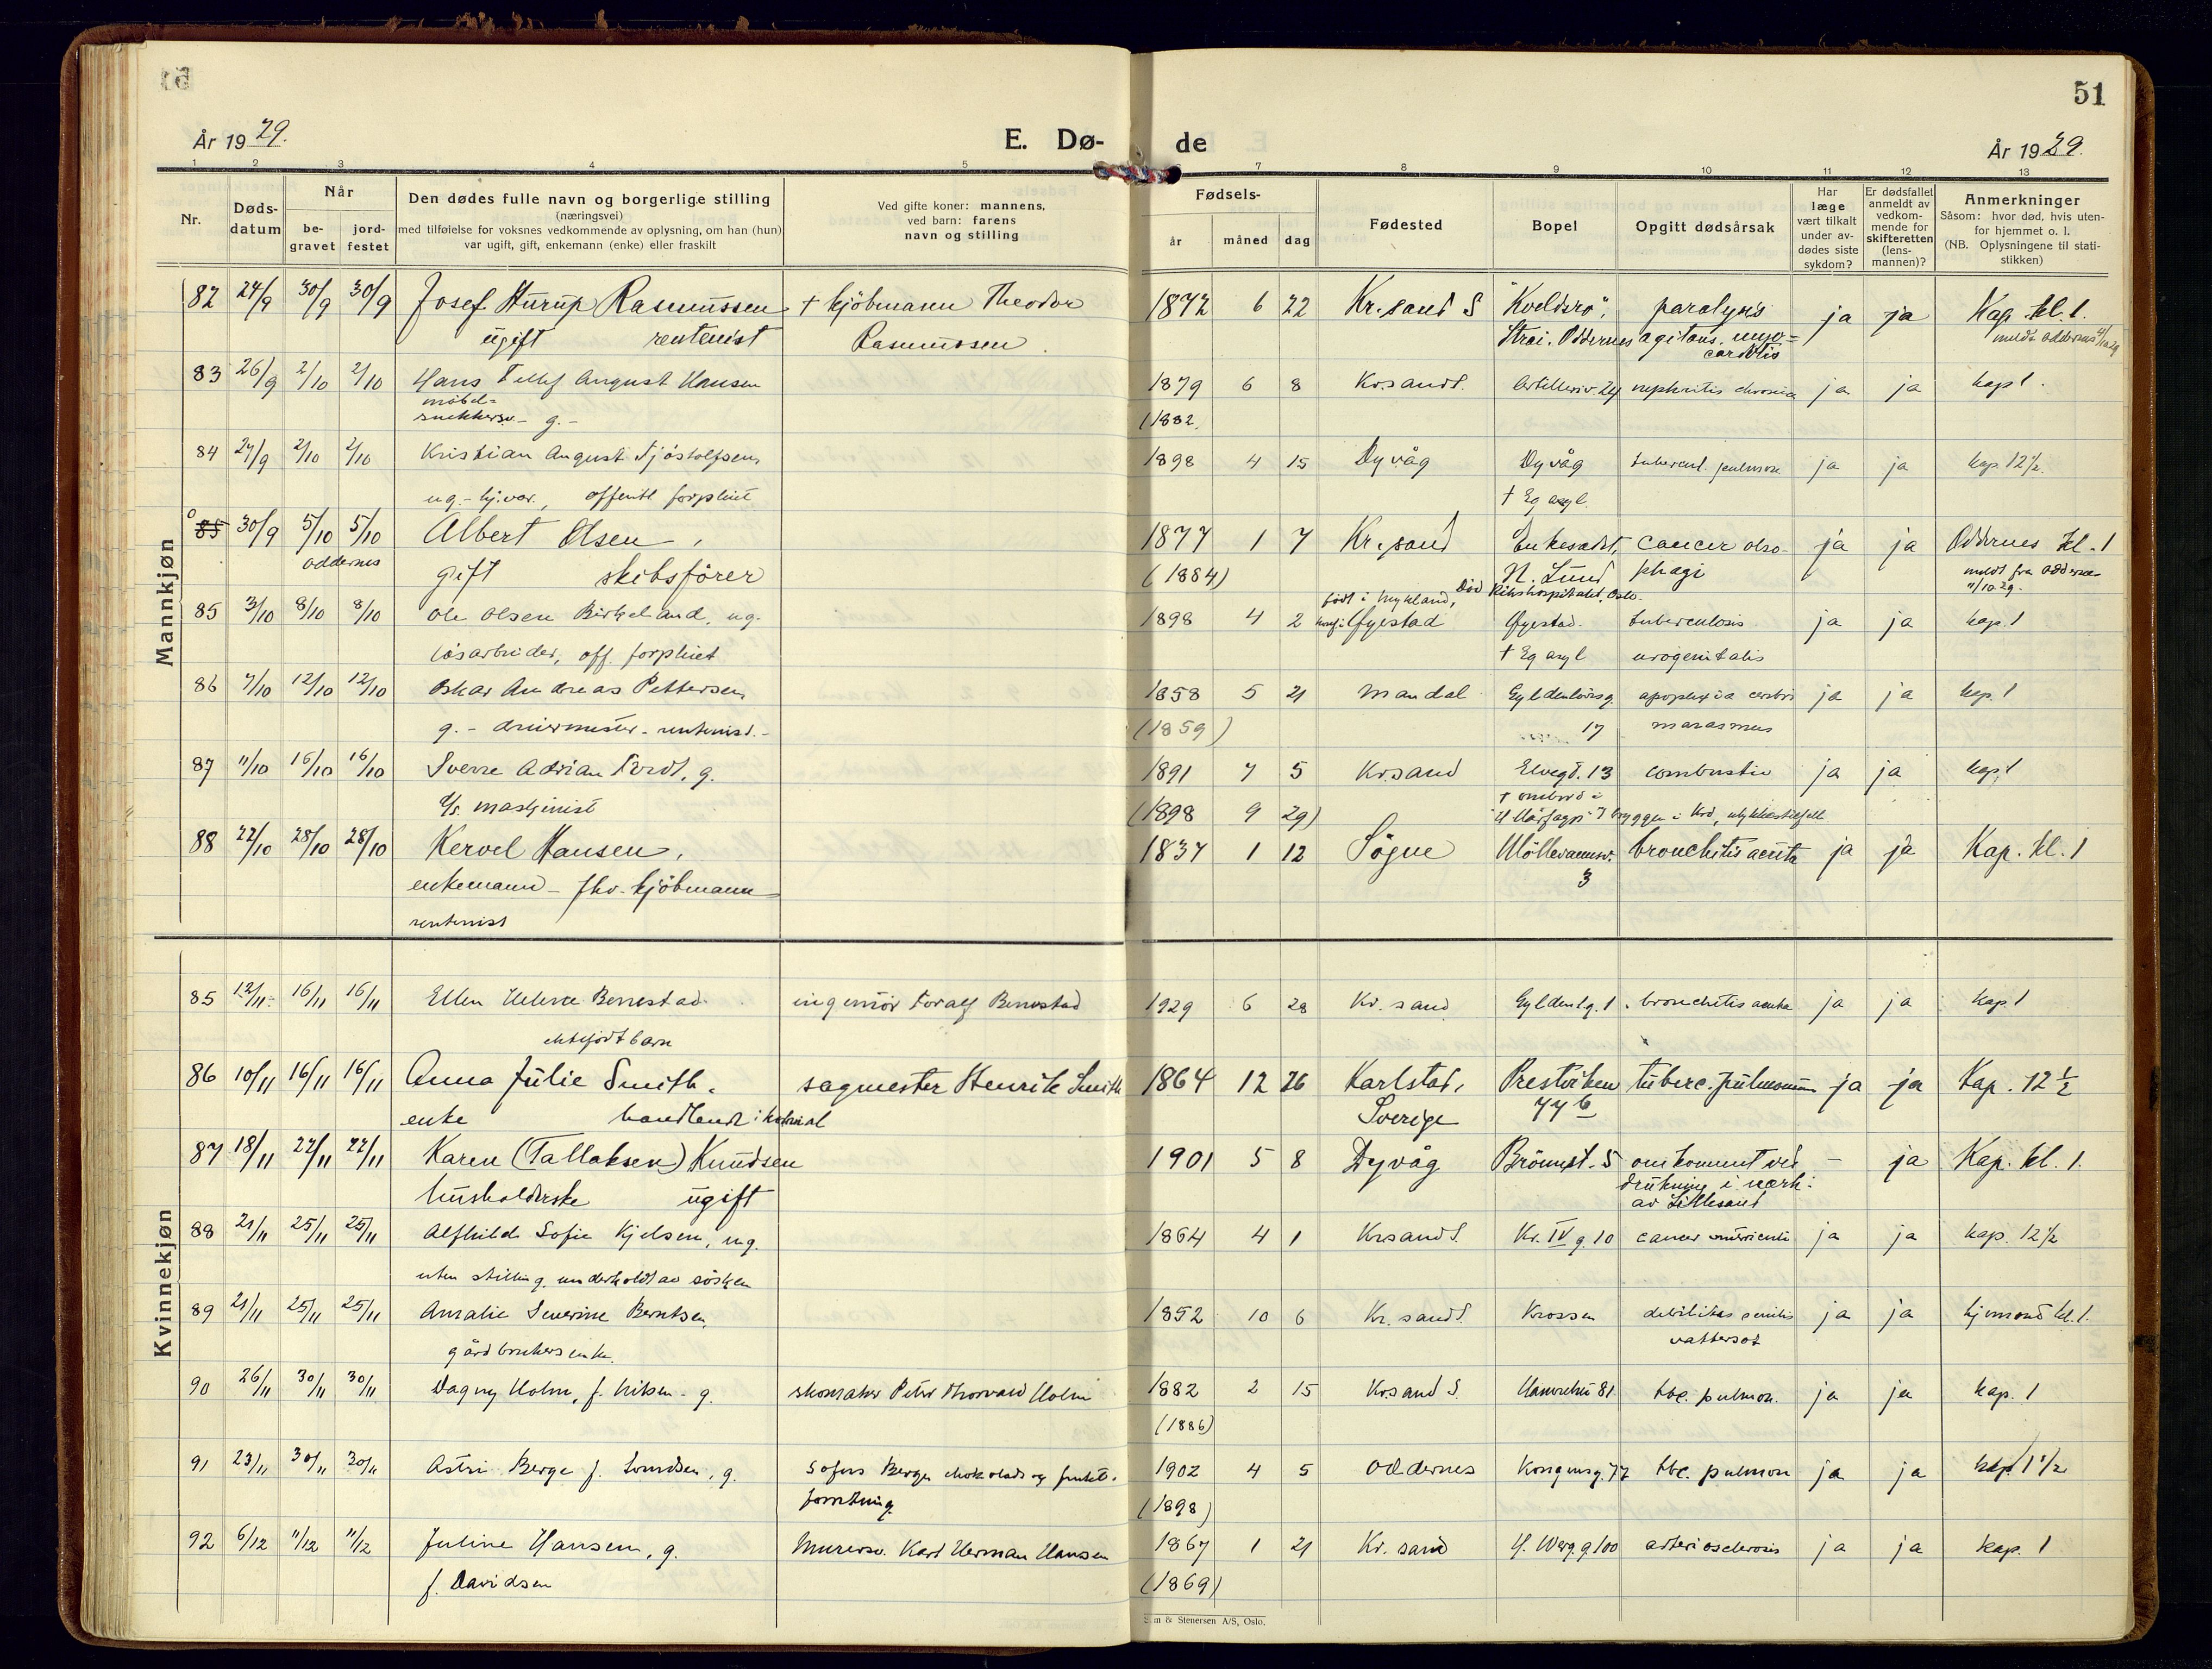 51
År 1929.
E. Dø-
de
År 1929.
1 2 3 4 5 7 8 9 10 11 12 13
Nr.
Døds-
datum
Når
be-
gravet
jord-
festet
Den dødes fulle navn og borgerlige stilling
(næringsvei)
med tilføielse for voksnes vedkommende av oplysning, om han (hun)
var ugift, gift, enkemann (enke) eller fraskilt
Ved gifte koner: mannens,
ved barn: farens
navn og stilling
Fødsels-
år
måned
dag
Fødested
Bopel
Opgitt dødsårsak
Har
læge
vært tilkalt
under av-
dødes siste
sykdom?
Er dødsfallet
anmeldt av
vedkom-
mende for
skifteretten
(lens-
mannen)?
Anmerkninger
Såsom: hvor død, hvis uten-
for hjemmet o. l.
(NB. Oplysningene til stati-
stikken)
Mannkjøn
82 24/9 30/9 30/9 Josef Hurup Rasmussen + kjöbmann Theodor 1872 6 22 Kr.sand S "Kveldsro", paralysis ja ja Kap. kl. 1.
ugift rentenist Rasmussen. Strai. Oddernes agitans, myo-
carditis
83 26/9 2/10 2/10 Hans Tellef August Hansen 1879 6 8 Kr.sand S. nephritis chronica ja ja kap 1.
møbel-
snekkersv. - g. - (1882.
84 27/9 2/10 2/10 Kristian August Tjöstolfsen, 1898 4 15 Dyvåg Dyvåg tubercul. pulmon ja ja kap. 12½.
ug. - , offentl. forpleiet + Eg asyl.
0 85 30/9 5/10 5/10 Albert Olsen, 1877 1 7 Kr.sand Enkesædet, cancer oeso- ja ja Oddernes kl. 1
oddernes gift skibsförer (1884) N. Lund phagi meldt fra Oddernes
11/10.29.
Död Rikshospitalet, Oslo.
født i Mykland,
85 3/10 8/10 8/10 Ole Olsen Birkeland, ug. 1898 4 2 Øyestad Øyestad. tuberculosis ja ja kap. 1
løsarbeider, off. forpleiet + Eg asyl urogenitalis
86 7/10 12/10 12/10 Oskar Andreas Pettersen, 1858 5 21 Mandal Gyldenløvesg. apoplexia cerebri ja ja kap. 1
g. - dreiermester - rentenist. - (1859) 17 marasmus
87 11/10 16/10 16/10 Sverre Adrian Tveit, g. 1891 7 5 Kr.sand Elvegt. 13 combustio ja ja kap 1
maskinist + ombord i
(1898 9 29) bryggen i Krs, ulykkestilfelle
88 22/10 28/10 28/10 Kervel Hansen, 1837 1 12 Sögne Möllevannsv. bronchitis acuta ja ja Kap. kl. 1
enkemann - fhv. kjöbmann 3
rentenist
Kvinnekjøn
85 12/11 16/11 16/11 Ellen Helene Bennestad ingeniör Toralf Bennestad 1929 6 28 Kr. sand Gyldenl.g. 1. bronchitis acuta ja ja kap 1
ektefödt barn
86 10/11 16/11 16/11 Anna Julie Smith. sagmester Henrik Smith 1864 12 26 Karlstad, Prestviken tuberc. pulmonum ja ja Kap. 12½
enke handlende i kolonial Sverige 77 b
87 18/11 22/11 22/11 Karen (Tallaksen) Knudsen 1901 5 8 Dyvåg Brönnst. 5 omkommet ved - ja Kap. kl. 1.
husholderske ugift drukning i nærh.
av Lillesand
88 21/11 25/11 25/11 Alfhild Sofie Kjelsen, ug. 1864 4 1 Krsand S. Kr. IV g. 10 cancer ventriculi ja ja kap. 12½
uten stilling, underholdt av søsken
89 21/11 25/11 25/11 Amalie Severine Berntsen, 1852 10 6 Kr. sand S. Krossen debilitas senilis ja ja kl. 1.
gårdbrukers enke. vattersot
90 26/11 30/11 30/11 Dagny Holm, f. Nilsen - g. skomaker Peter Thorvald Holm 1882 2 15 Krsand S. 81 tbc. pulmon. ja ja kap. 1
(1886)
91 23/11 30/11 30/11 Astri Berge f. g. Sofus Berge, chokolade og frukt- 1902 4 5 Oddernes Kongensg. 77 tbc. pulmon ja ja kap. 1½
forretning. (1898)
92 6/12 11/12 11/12 Juline Hansen, g. Murersv. Karl Herman Hansen 1867 1 21 Kr. sand H. Werg. g 100 arteriosclerosis ja ja kap. 1
f. Davidsen (1869)
& Stenersen A/S, Oslo.